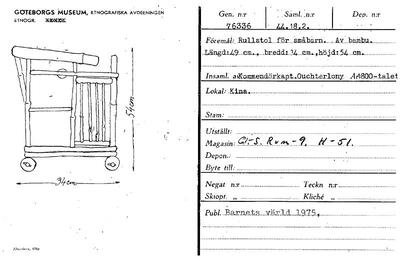 GÖTEBORGS MUSEUM, ETNOGRAFISKA AVDELNINGEN
ETNOGR.
54cm
34cm
Gen. n:r Saml. n:r Dat.
76336 44.18.2.
Föremål: Rullstol för småbarn. Av bambu.
Längd:49 cm., bredd:34 cm.,höjd:54 cm.
Insaml. a Kommendörkapt.Ouchterlony 1800-talet
Lokal: Kina.
Stam:
Utställt:
Magasin: Öl-S. Rum-9. H-51.
Depon.
Byte till:
Negat n:r Teckn n:r
Skiopt. „ Kliché „
Publ. Barnets värld 1975,